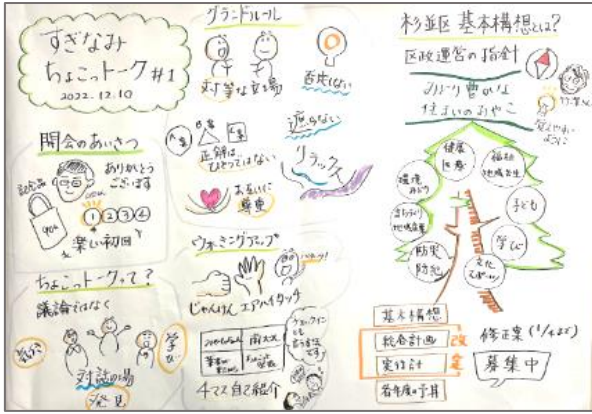 すぎなみ
ちょこっトーク #1
2022.12.10
開会のあいさつ
記念品
ありがとう
ございます
①②③④
楽しい初回
ちょこっトークって?
議論ではなく
気づき
学び
対話の場
発見
グランドルール
対等な立場
否定しない
正解は
ひとつではない
遮らない
リラックス
お互いに
尊重
ウォーミングアップ
じゃんけん エアハイタッチ
4マス自己紹介
杉並区 基本構想とは?
区政運営の指針
みどり豊かな
住まいのみやこ
健康
医療
福祉
地域共生
環境
みどり
まちづくり
地域産業
子ども
学び
防災
防犯
文化
スポーツ
基本構想
総合計画
実行計画
改定
各年度の予算
修正案
募集中